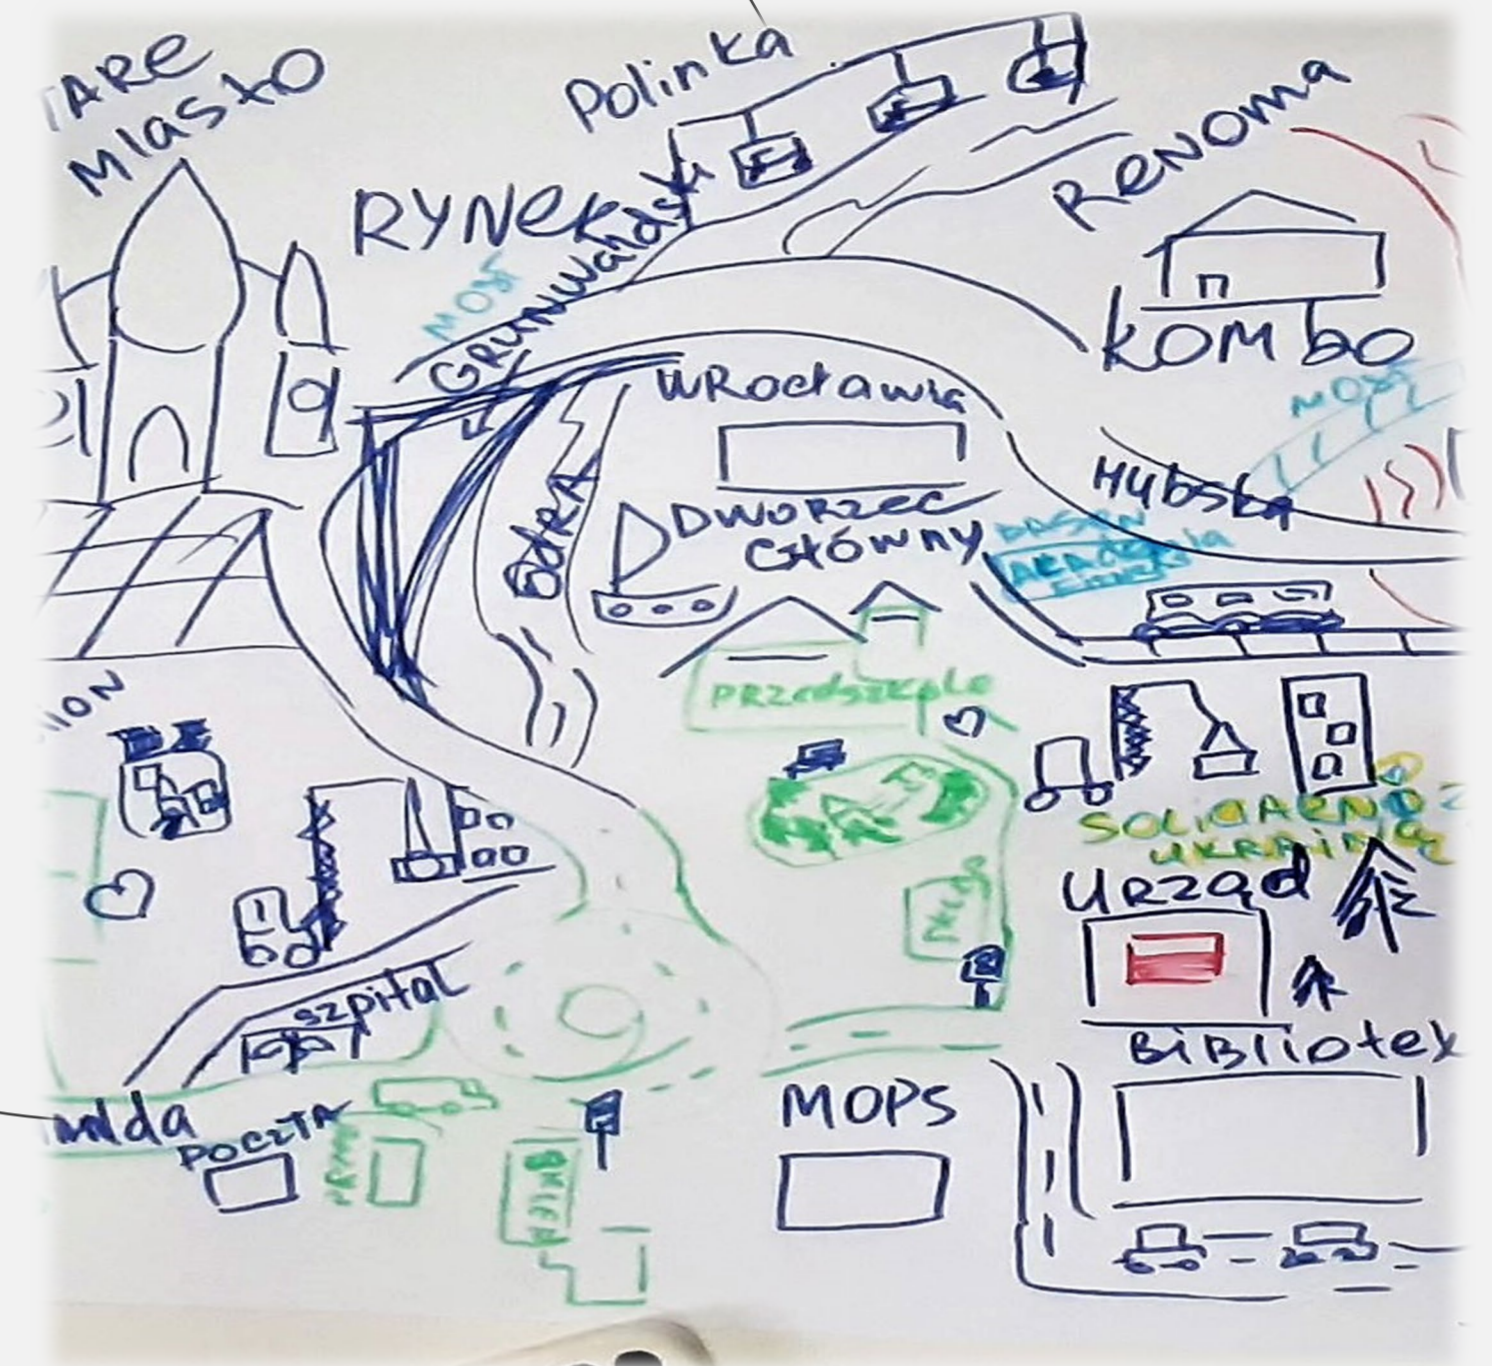 TARE
MIASTO
Polinka
RENOMA
RYNEK
MOST
GRUNWALDSKI
KOMBO
MOST
WROCŁAWIA
HUBSKA
ODRA
DWORZEC
GŁÓWNY
BASEN
AKADEMIA
PRZEDSZKOLE
ION
SOLIDARNO
UKRAINA
URZĄD
szpital
BIBLIOTEK
MOPS
POCZTA